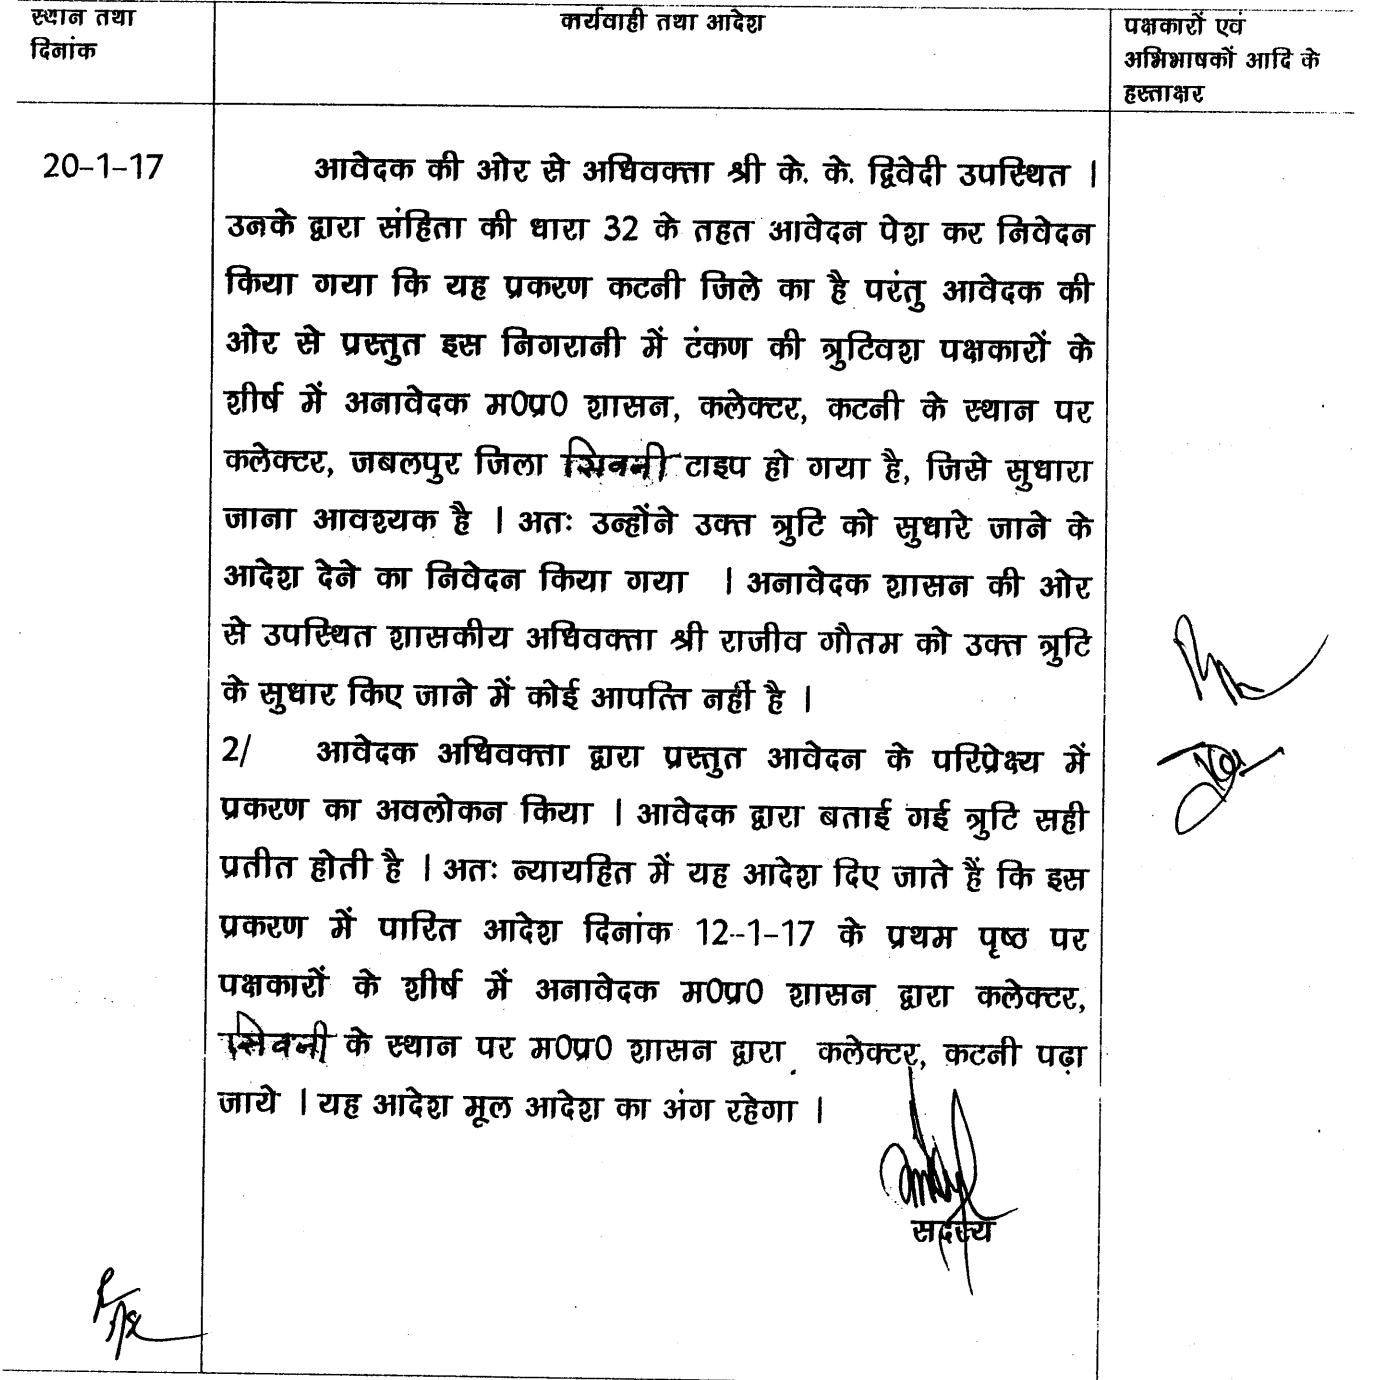 स्थान तथा
दिनांक
कार्यवाही तथा आदेश
पक्षकारों एवं
अभिभाषकों आदि के
हस्ताक्षर
20-1-17
आवेदक की ओर से अधिवक्ता श्री के. के. द्विवेदी उपस्थित ।
उनके द्वारा संहिता की धारा 32 के तहत आवेदन पेश कर निवेदन
किया गया कि यह प्रकरण कटनी जिले का है परंतु आवेदक की
ओर से प्रस्तुत इस निगरानी में टंकण की त्रुटिवश पक्षकारों के
शीर्ष में अनावेदक म0प्र0 शासन, कलेक्टर, कटनी के स्थान पर
कलेक्टर, जबलपुर जिला सिवनी टाइप हो गया है, जिसे सुधारा
जाना आवश्यक है । अतः उन्होंने उक्त त्रुटि को सुधारे जाने के
आदेश देने का निवेदन किया गया । अनावेदक शासन की ओर
से उपस्थित शासकीय अधिवक्ता श्री राजीव गौतम को उक्त त्रुटि
के सुधार किए जाने में कोई आपत्ति नहीं है ।
2/ आवेदक अधिवक्ता द्वारा प्रस्तुत आवेदन के परिप्रेक्ष्य में
प्रकरण का अवलोकन किया । आवेदक द्वारा बताई गई त्रुटि सही
प्रतीत होती है । अतः न्यायहित में यह आदेश दिए जाते हैं कि इस
प्रकरण में पारित आदेश दिनांक 12-1-17 के प्रथम पृष्ठ पर
पक्षकारों के शीर्ष में अनावेदक म0प्र0 शासन द्वारा कलेक्टर,
सिवनी के स्थान पर म0प्र0 शासन द्वारा कलेक्टर, कटनी पढ़ा
जाये । यह आदेश मूल आदेश का अंग रहेगा ।
सदस्य